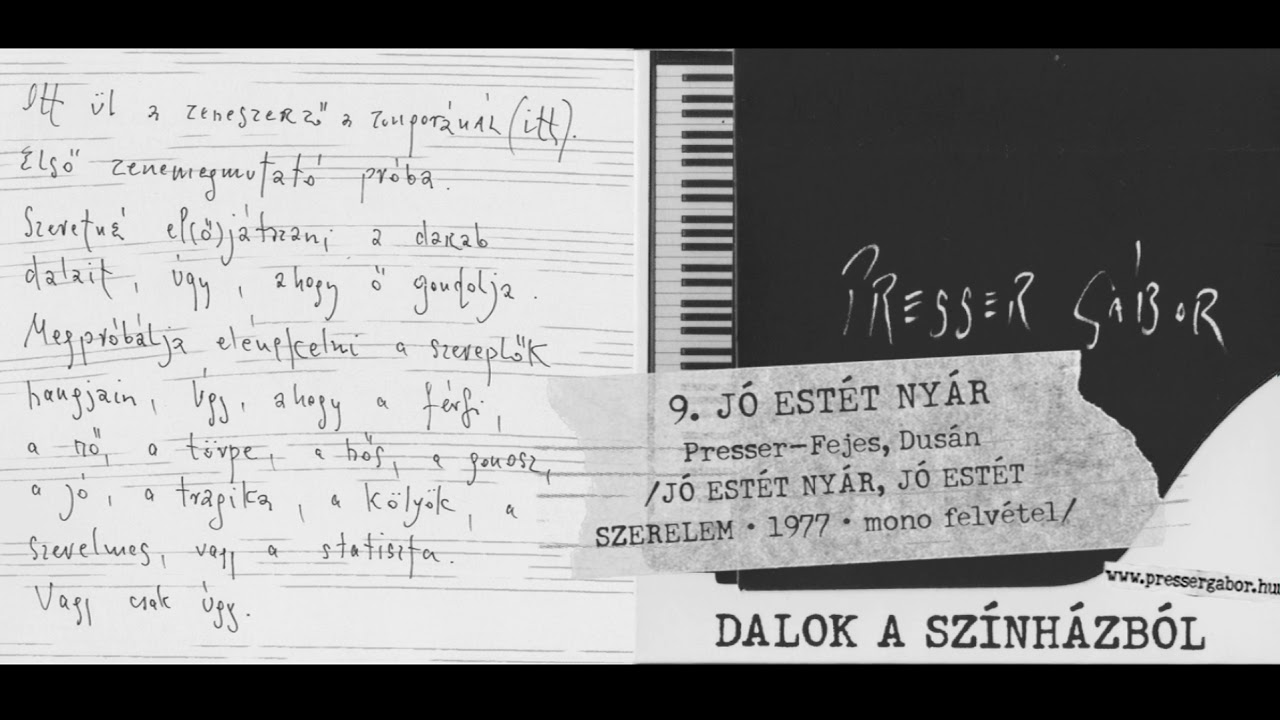 Itt ül a zeneszerző a zongoránál (itt).
Első zenemegmutató próba.
Szeretné el(ő)játszani a darab
dalait, úgy, ahogy ő gondolja.
Megpróbálja elénekelni a szereplők
hangjain, úgy, ahogy a férfi,
a nő, a törpe, a hős, a gonosz,
a jó, a tragika, a kölyök, a
szerelmes, vagy a statiszta.
Vagy csak úgy.
PRESSER GÁBOR
9. JÓ ESTÉT NYÁR
Presser-Fejes, Dusán
/JÓ ESTÉT NYÁR, JÓ ESTÉT
SZERELEM • 1977 • mono felvétel/
www.pressergabor.hu
DALOK A SZÍNHÁZBÓL